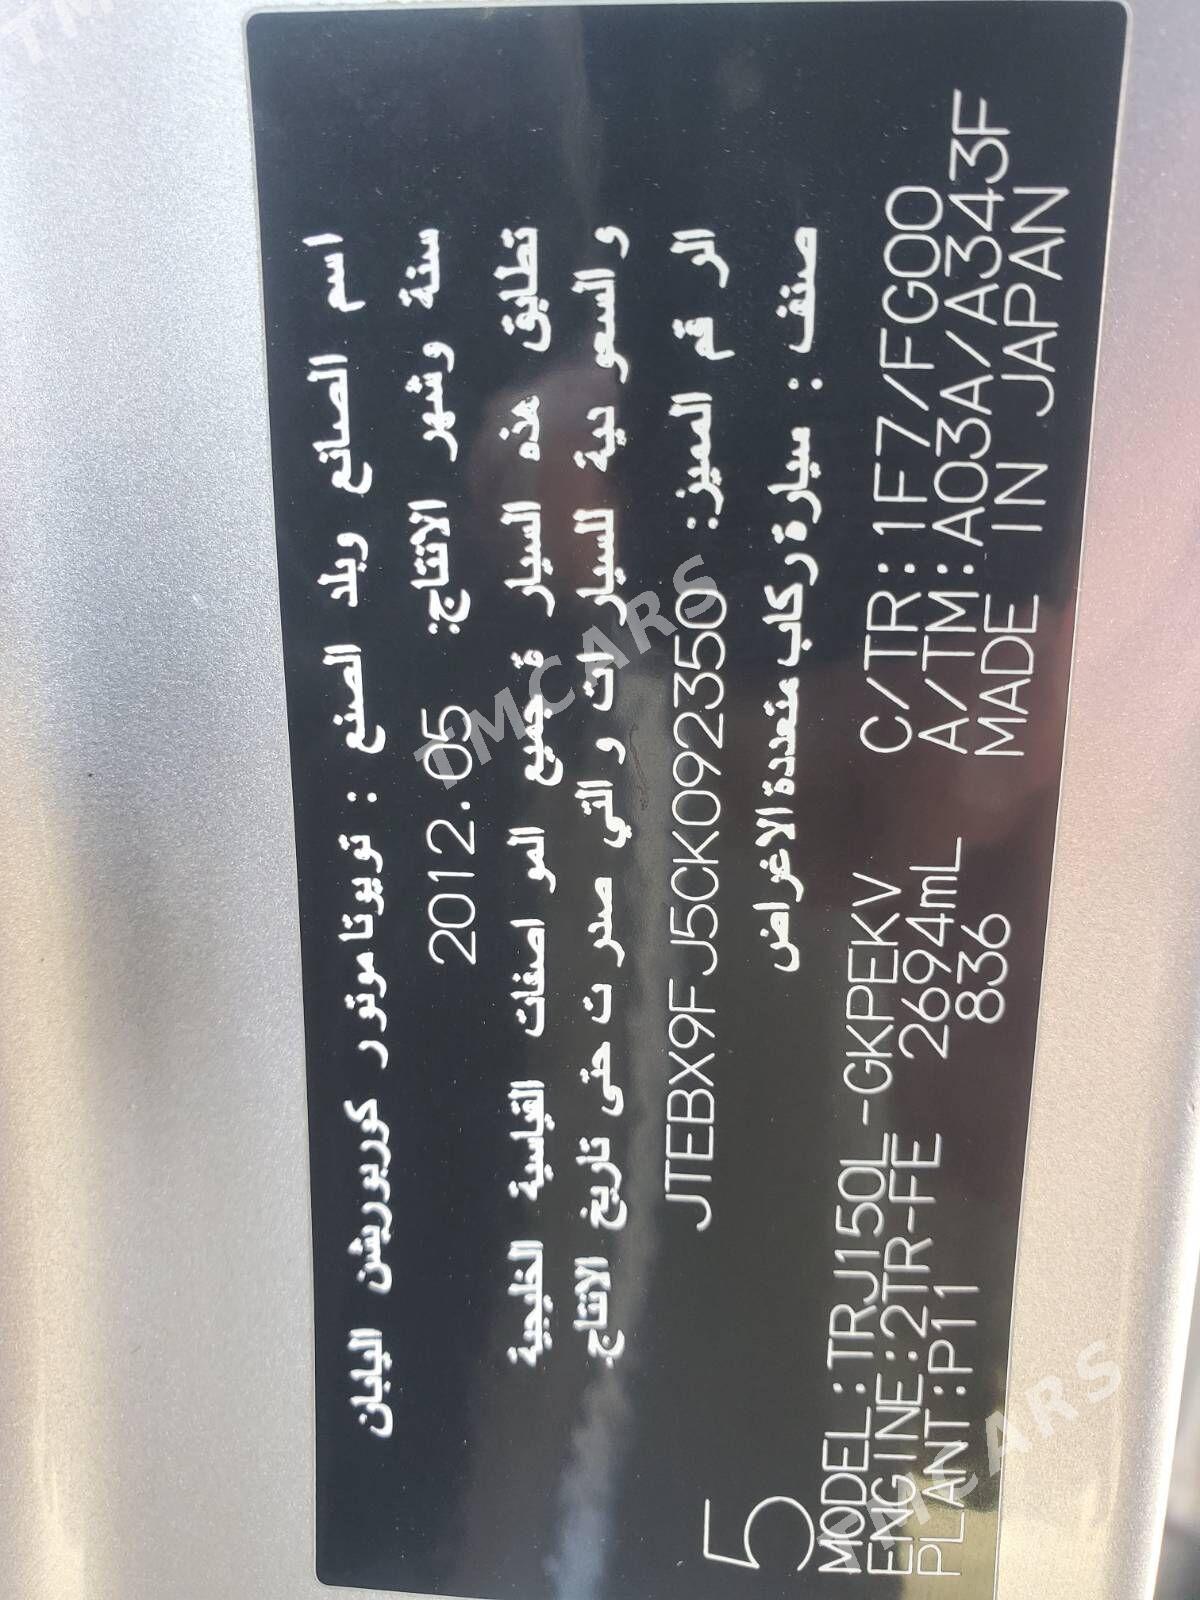 اسم الصانع وبلد الصنع : تويوتا موتور كوربوريشن اليابان
سنة وشهر الانتاج: 2012.05
تطابق هذه السيار ة جميع المو اصفات القياسية الخليجية
و السعو دية للسيار ات و التي صدر ت حتى تاريخ الانتاج.
الر قم المميز: JTEBX9FJ5CK092350
صنف : سيارة ركاب متعددة الاغراض
5
MODEL:TRJ150L-GKPEKV C/TR:1F7/FG00
ENGINE:2TR-FE 2694mL A/TM:A03A/A343F
PLANT:P11 836 MADE IN JAPAN
TMCARS
TMCARS
TM